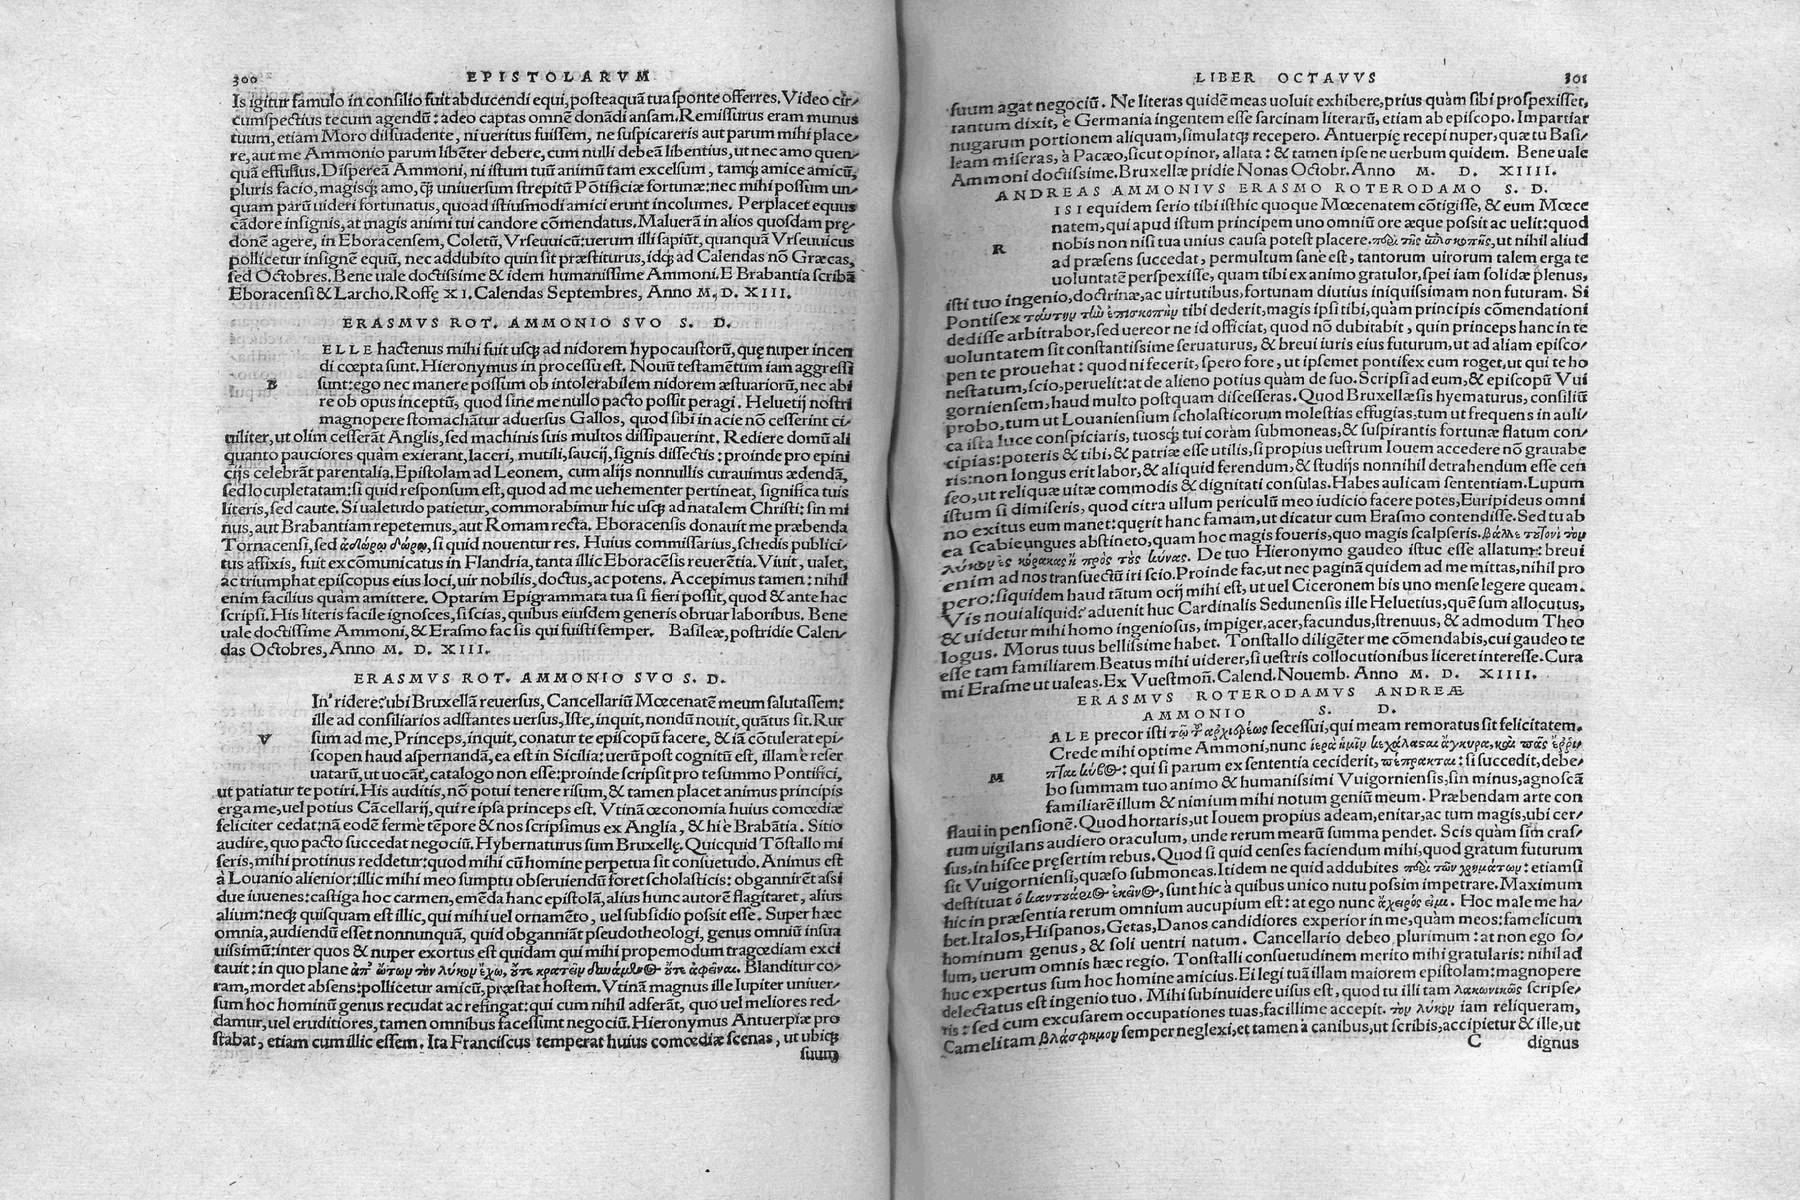 300 EPISTOLARVM
Is igitur famulo in consilio fuit abducendi equi, posteaquã tua sponte offerres. Video cir-
cumspectius tecum agendũ: adeo captas omnẽ donãdi ansam. Remissurus eram munus
tuum, etiam Moro dissuadente, ni ueritus fuissem, ne suspicareris aut parum mihi place-
re, aut me Ammonio parum libẽter debere, cum nulli debeã libentius, ut nec amo quen-
quã effusius. Dispereã Ammoni, ni istum tuũ animũ tam excelsum, tamq́; amice amicũ,
pluris facio, magisq́; amo, q̃ uniuersum strepitũ Põtificiæ fortunæ: nec mihi possum un-
quam parũ uideri fortunatus, quoad istiusmodi amici erunt incolumes. Perplacet equus
cãdore insignis, at magis animi tui candore cõmendatus. Maluerã in alios quosdam prę-
donẽ agere, in Eboracensem, Coletũ, Vrseuuicũ: uerum illi sapiũt, quanquã Vrseuuicus
pollicetur insignẽ equũ, nec addubito quin sit præstiturus, idq́; ad Calendas nõ Græcas,
sed Octobres. Bene uale doctissime & idem humanissime Ammoni. E Brabantia scribã
Eboracensi & Larcho. Roffę XI. Calendas Septembres, Anno M. D. XIII.
ERASMVS ROT. AMMONIO SVO S. D.
B ELLE hactenus mihi fuit usq́; ad nidorem hypocaustorũ, quę nuper incen
di cœpta sunt. Hieronymus in processu est. Nouũ testamẽtum iam aggressi
sunt: ego nec manere possum ob intolerabilem nidorem æstuariorũ, nec abi
re ob opus inceptũ, quod sine me nullo pacto possit peragi. Heluetij nostri
magnopere stomachãtur aduersus Gallos, quod sibi in acie nõ cesserint ci-
uiliter, ut olim cesserãt Anglis, sed machinis suis multos dissipauerint. Rediere domũ ali
quanto pauciores quàm exierant, laceri, mutili, saucij, signis dissectis: proinde pro epini
cijs celebrãt parentalia. Epistolam ad Leonem, cum alijs nonnullis curauimus ædendã,
sed locupletatam: si quid responsum est, quod ad me uehementer pertineat, significa tuis
literis, sed caute. Si ualetudo patietur, commorabimur hic usq́; ad natalem Christi: sin mi
nus, aut Brabantiam repetemus, aut Romam recta. Eboracensis donauit me præbenda
Tornacensi, sed ἀδώρῳ δώρῳ, si quid nouentur res. Huius commissarius, schedis publici-
tus affixis, fuit excõmunicatus in Flandria, tanta illic Eboracẽsis reuerẽtia. Viuit, ualet,
ac triumphat episcopus eius loci, uir nobilis, doctus, ac potens. Accepimus tamen: nihil
enim facilius quàm amittere. Optarim Epigrammata tua si fieri possit, quod & ante hac
scripsi. His literis facile ignosces, si scias, quibus eiusdem generis obruar laboribus. Bene
uale doctissime Ammoni, & Erasmo fac sis qui fuisti semper. Basileæ, postridie Calen-
das Octobres, Anno M. D. XIII.
ERASMVS ROT. AMMONIO SVO S. D.
V In' ridere? ubi Bruxellã reuersus, Cancellariũ Mœcenatẽ meum salutassem:
ille ad consiliarios adstantes uersus, Iste, inquit, nondũ nouit, quãtus sit. Rur
sum ad me, Princeps, inquit, conatur te episcopũ facere, & iã cõtulerat epi-
scopen haud aspernandã, ea est in Sicilia: uerũ post cognitũ est, illam è reser
uatarũ, ut uocãt, catalogo non esse: proinde scripsit pro te summo Pontifici,
ut patiatur te potiri. His auditis, nõ potui tenere risum, & tamen placet animus principis
erga me, uel potius Cãcellarij, qui re ipsa princeps est. Vtinã œconomia huius comœdiæ
feliciter cedat: nã eodẽ ferme tẽpore & nos scripsimus ex Anglia, & hi è Brabãtia. Sitio
audire, quo pacto succedat negociũ. Hybernaturus sum Bruxellę. Quicquid Tõstallo mi
seris, mihi protinus reddetur: quod mihi cũ homine perpetua sit consuetudo. Animus est
à Louanio alienior: illic mihi meo sumptu obseruiendũ foret scholasticis: obgannirẽt assi
due iuuenes: castiga hoc carmen, emẽda hanc epistolã, alius hunc autorẽ flagitaret, alius
alium: neq́; quisquam est illic, qui mihi uel ornamẽto, uel subsidio possit esse. Super hæc
omnia, audiendũ esset nonnunquã, quid obganniãt pseudotheologi, genus omniũ insua
uissimũ: inter quos & nuper exortus est quidam qui mihi propemodum tragœdiam exci
tauit: in quo plane ἀπ' ὤτων τὸν λύκον ἔχω, οὔτε κρατεῖν δυνάμενος οὔτε ἀφεῖναι. Blanditur co-
ram, mordet absens: pollicetur amicũ, præstat hostem. Vtinã magnus ille Iupiter uniuer-
sum hoc hominũ genus recudat ac refingat: qui cum nihil adferãt, quo uel meliores red-
damur, uel eruditiores, tamen omnibus facessunt negociũ. Hieronymus Antuerpiæ pro
stabat, etiam cum illic essem. Ita Franciscus temperat huius comœdiæ scenas, ut ubiq́;
suum
LIBER OCTAVVS 301
suum agat negociũ. Ne literas quidẽ meas uoluit exhibere, prius quàm sibi prospexisset,
tantum dixit, è Germania ingentem esse sarcinam literarũ, etiam ab episcopo. Impartiar
nugarum portionem aliquam, simulatq́; recepero. Antuerpię recepi nuper, quæ tu Basi-
leam miseras, à Pacæo, sicut opinor, allata: & tamen ipse ne uerbum quidem. Bene uale
Ammoni doctissime. Bruxellæ pridie Nonas Octobr. Anno M. D. XIIII.
ANDREAS AMMONIVS ERASMO ROTERODAMO S. D.
R ISI equidem serio tibi isthic quoque Mœcenatem cõtigisse, & eum Mœce
natem, qui apud istum principem uno omniũ ore æque possit ac uelit: quod
nobis non nisi tua unius causa potest placere. περὶ τῆς ἐπισκοπῆς, ut nihil aliud
ad præsens succedat, permultum sane est, tantorum uirorum talem erga te
uoluntatẽ perspexisse, quam tibi ex animo gratulor, spei iam solidæ plenus,
isti tuo ingenio, doctrinæ, ac uirtutibus, fortunam diutius iniquissimam non futuram. Si
Pontifex ταύτην τὴν ἐπισκοπὴν tibi dederit, magis ipsi tibi, quàm principis cõmendationi
dedisse arbitrabor, sed uereor ne id officiat, quod nõ dubitabit, quin princeps hanc in te
uoluntatem sit constantissime seruaturus, & breui iuris eius futurum, ut ad aliam episco-
pen te prouehat: quod ni fecerit, spero fore, ut ipsemet pontifex eum roget, ut qui te ho
nestatum, scio, peruelit: at de alieno potius quàm de suo. Scripsi ad eum, & episcopũ Vui
gorniensem, haud multo postquam discesseras. Quod Bruxellæ sis hyematurus, consiliũ
probo, tum ut Louaniensium scholasticorum molestias effugias, tum ut frequens in auli-
ca ista luce conspiciaris, tuosq́; tui coràm submoneas, & suspirantis fortunæ flatum con-
cipias: poteris & tibi, & patriæ esse utilis, si propius uestrum Iouem accedere nõ grauabe
ris: non longus erit labor, & aliquid ferendum, & studijs nonnihil detrahendum esse cen
seo, ut reliquæ uitæ commodis & dignitati consulas. Habes aulicam sententiam. Lupum
istum si dimiseris, quod citra ullum periculũ meo iudicio facere potes, Euripideus omni
no exitus eum manet: querit hanc famam, ut dicatur cum Erasmo contendisse. Sed tu ab
ea scabie ungues abstineto, quam hoc magis foueris, quo magis scalpseris. βάλλε τοῖον τὸν
λύκον ἐς κόρακας ἢ πρὸς τοὺς κύνας. De tuo Hieronymo gaudeo istuc esse allatum: breui
enim ad nos transuectũ iri scio. Proinde fac, ut nec paginã quidem ad me mittas, nihil pro
pero: siquidem haud tãtum ocij mihi est, ut uel Ciceronem bis uno mense legere queam.
Vis noui aliquid? aduenit huc Cardinalis Sedunensis ille Heluetius, quẽ sum allocutus,
& uidetur mihi homo ingeniosus, impiger, acer, facundus, strenuus, & admodum Theo
logus. Morus tuus bellissime habet. Tonstallo diligẽter me cõmendabis, cui gaudeo te
esse tam familiarem. Beatus mihi uiderer, si uestris collocutionibus liceret interesse. Cura
mi Erasme ut ualeas. Ex Vuestmoñ. Calend. Nouemb. Anno M. D. XIIII.
ERASMVS ROTERODAMVS ANDREÆ
AMMONIO S. D.
M ALE precor isti τῷ τοῦ ἀρχιερέως secessui, qui meam remoratus sit felicitatem.
Crede mihi optime Ammoni, nunc ἱερὰ ἡμῖν κεχάλασαι ἄγκυρα, καὶ πᾶς ἔρρι
πται κύβος: qui si parum ex sententia ceciderit, πέπρακται: si succedit, debe-
bo summam tuo animo & humanissimi Vuigorniensis, sin minus, agnoscã
familiarẽ illum & nimium mihi notum geniũ meum. Præbendam arte con
flaui in pensionẽ. Quod hortaris, ut Iouem propius adeam, enitar, ac tum magis, ubi cer-
tum uigilans audiero oraculum, unde rerum mearũ summa pendet. Scis quàm sim cras-
sus, in hisce pręsertim rebus. Quod si quid censes faciendum mihi, quod gratum futurum
sit Vuigorniensi, quæso submoneas. Itidem ne quid addubites περὶ τῶν χρημάτων: etiamsi
destituat ὁ καντουάριος ἐκεῖνος, sunt hic à quibus unico nutu possim impetrare. Maximum
hic in præsentia rerum omnium aucupium est: at ego nunc ἄχειρός εἰμι. Hoc male me ha-
bet. Italos, Hispanos, Getas, Danos candidiores experior in me, quàm meos: famelicum
hominum genus, & soli uentri natum. Cancellario debeo plurimum: at non ego so-
lum, uerum omnis hæc regio. Tonstalli consuetudinem merito mihi gratularis: nihil ad
huc expertus sum hoc homine amicius. Ei legi tuã illam maiorem epistolam: magnopere
delectatus est ingenio tuo. Mihi subinuidere uisus est, quod tu illi tam λακωνικῶς scripse-
ris: sed cum excusarem occupationes tuas, facillime accepit. τὸν λύκον iam reliqueram,
Camelitam βλάσφημον semper neglexi, et tamen à canibus, ut scribis, accipietur & ille, ut
C dignus